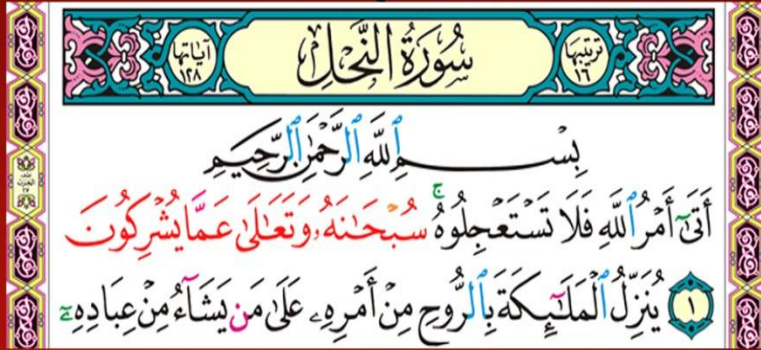 ترتيبها ١٦ سُورَةُ النَّحْلِ آياتها ١٢٨
بِسْمِ ٱللَّهِ ٱلرَّحْمَٰنِ ٱلرَّحِيمِ
أَتَىٰٓ أَمْرُ ٱللَّهِ فَلَا تَسْتَعْجِلُوهُۚ سُبْحَٰنَهُۥ وَتَعَٰلَىٰ عَمَّا يُشْرِكُونَ
١ يُنَزِّلُ ٱلْمَلَٰٓئِكَةَ بِٱلرُّوحِ مِنْ أَمْرِهِۦ عَلَىٰ مَن يَشَآءُ مِنْ عِبَادِهِۦٓ